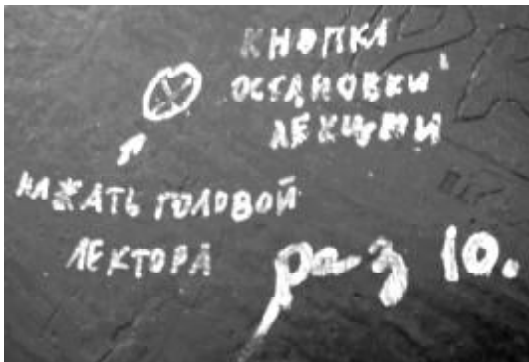 КНОПКА
ОСТАНОВКИ
ЛЕКЦИИ
НАЖАТЬ ГОЛОВОЙ
ЛЕКТОРА
ра-з 10.